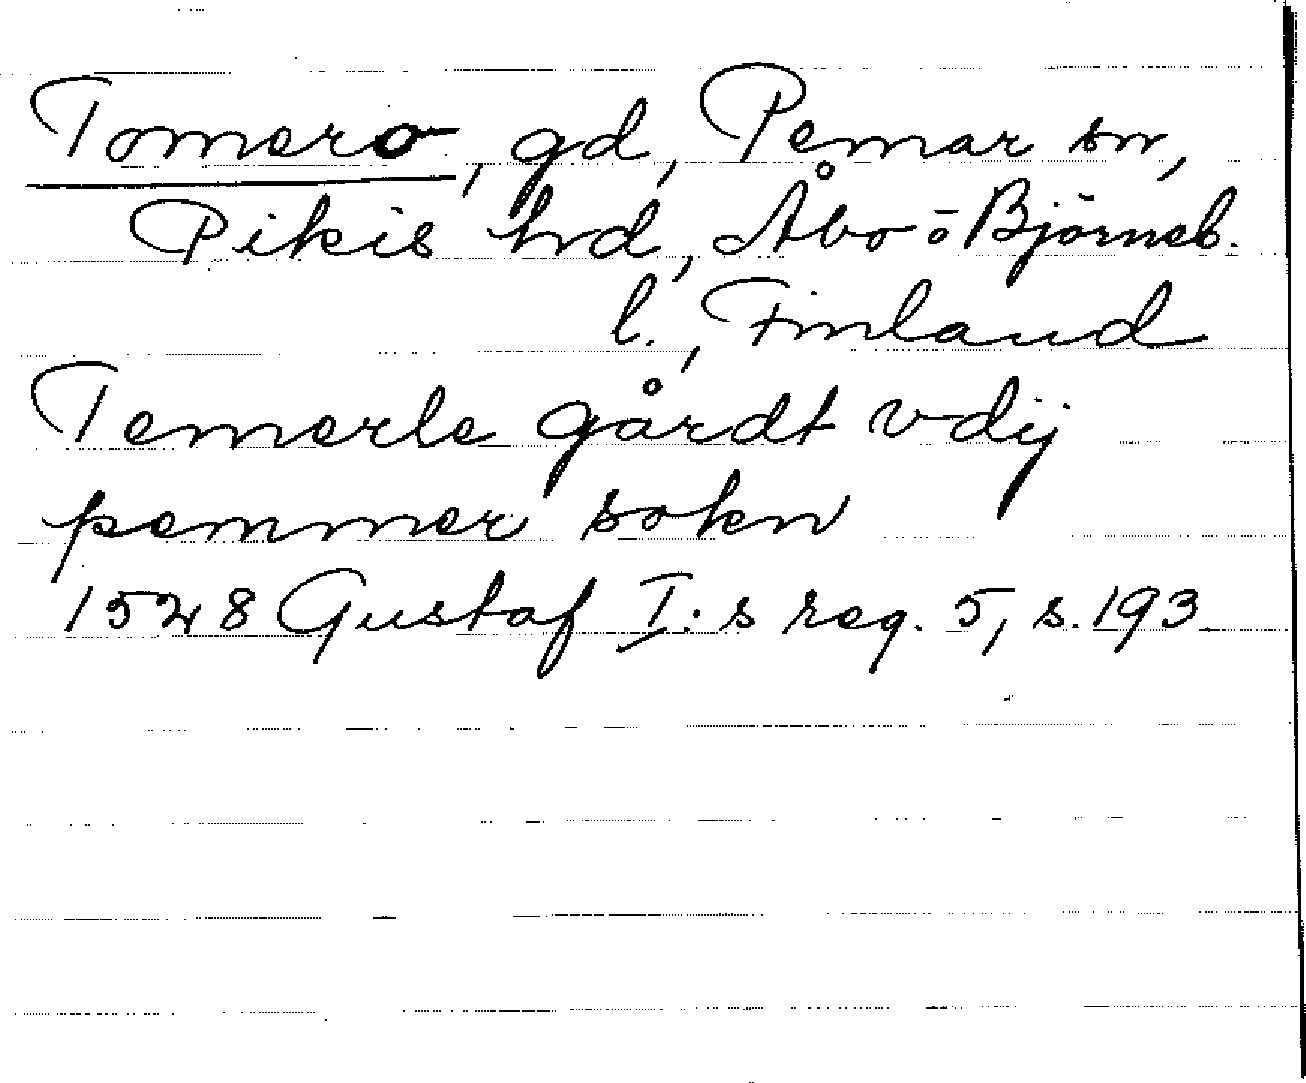 Tomero, gd, Pemar sn,
Pikis hrd, Åbo o Björneb.
l., Finland
Temerle gårdt vdij
pemmer sokn
1528 Gustaf I:s reg. 5, s. 193